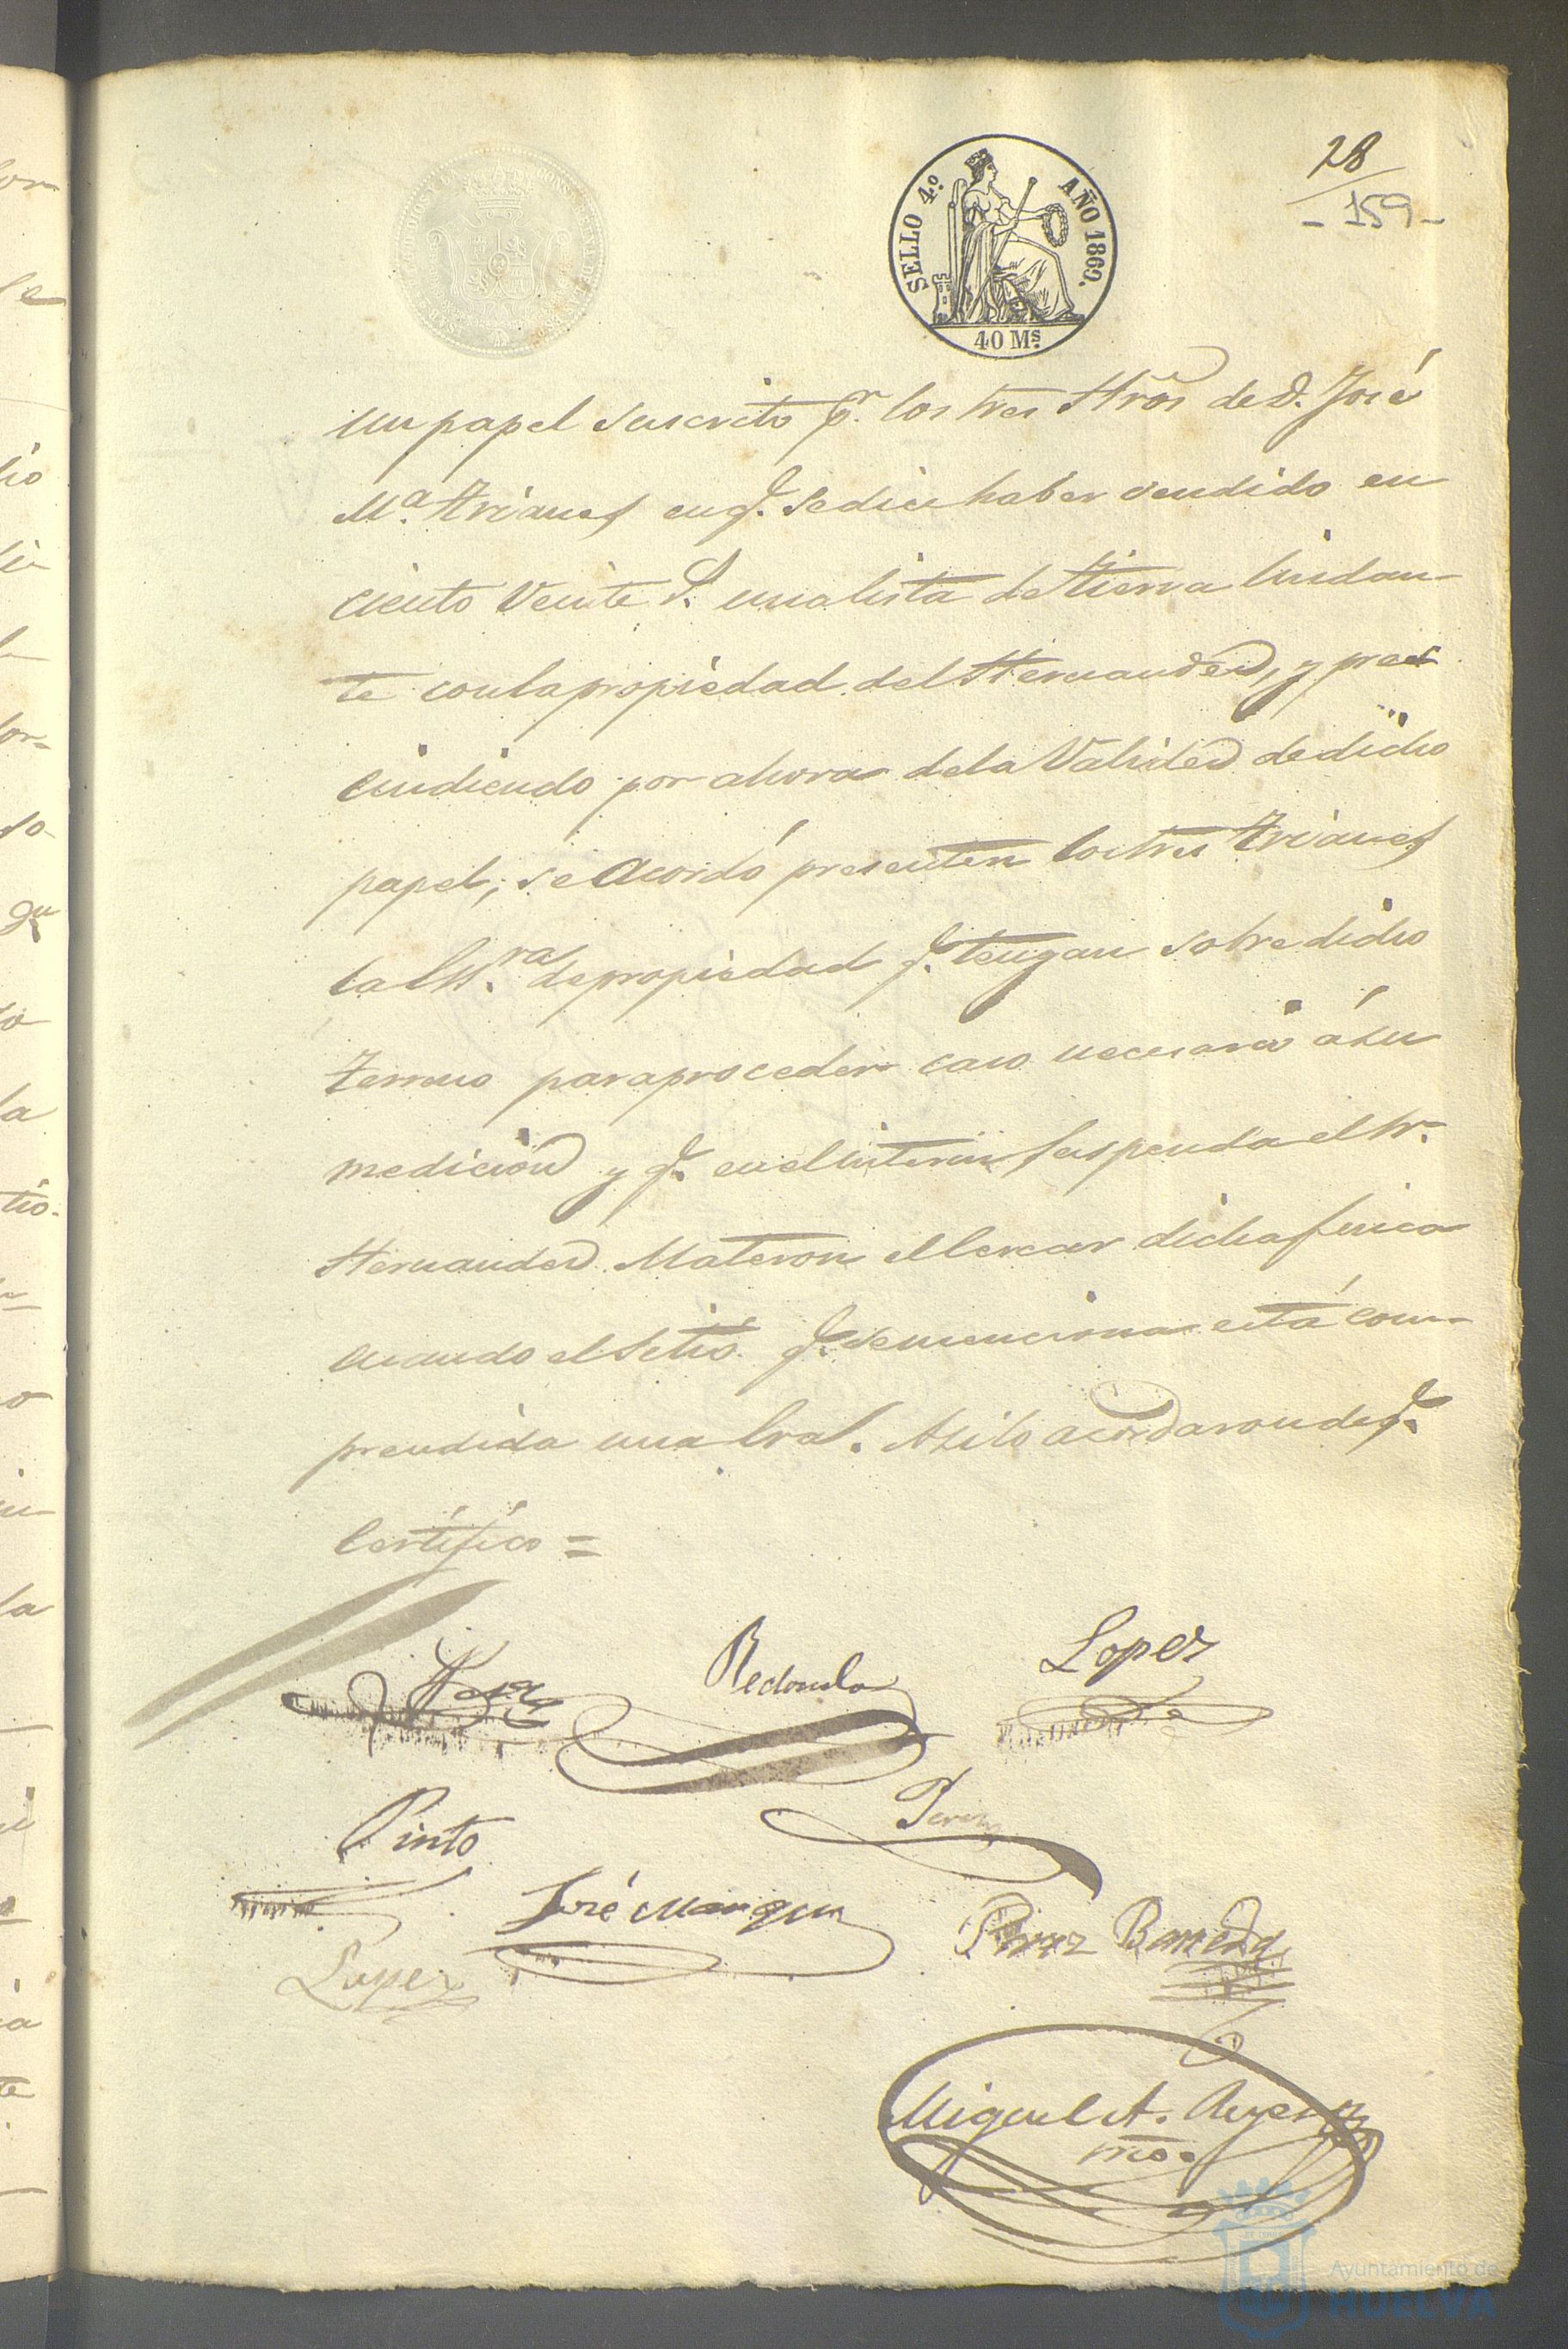 28
- 159 -
SELLO 4.º AÑO 1869.
40 Ms.
un papel suscrito pr. los tres Hros de D. José
Mª. Trianes en q. se dice haber vendido en
ciento veinte r. una lista de tierra lindan-
te con la propiedad del Hernandez, y pres
cindiendo por ahora de la validez de dicho
papel; se Acordó presenten los tres Trianes
la Essra. de propiedad q. tengan sobre dicho
terreno para proceder caso necesario á su
medición y q. en el interin suspenda el Sr.
Hernandez Materon el cercar dicha finca
cuando el sitio q. se menciona está com-
prendida una
Asi lo acordaron de q.
Certifico =
Redondo
Lopez
Pinto
Perez
José Marquez
Perez Barreda
Lopez
Miguel A.
srio.
Ayuntamiento de
HUELVA